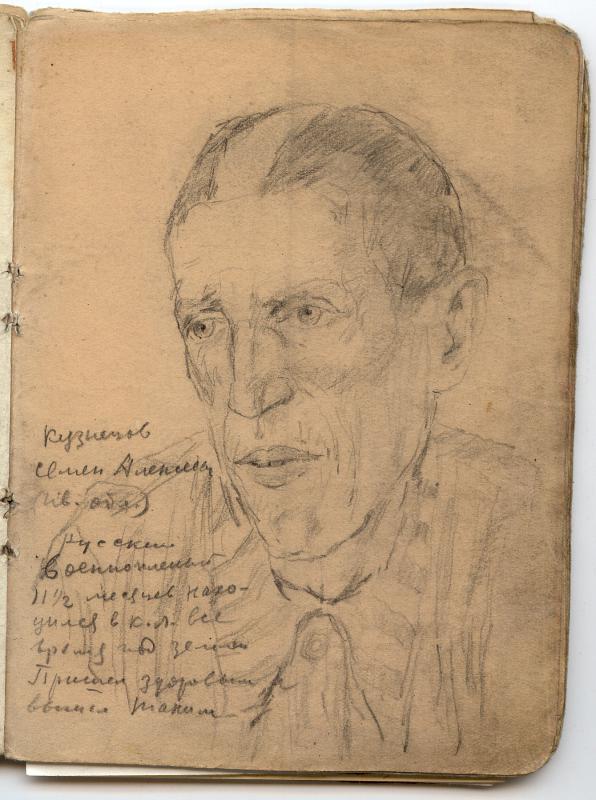 Кузнецов
Семен Алексеев
обл.)
Русский
Военнопленный
11½ месяцев нахо-
дился в к.л. все
время под землей
Пришел здоровым и
вышел таким